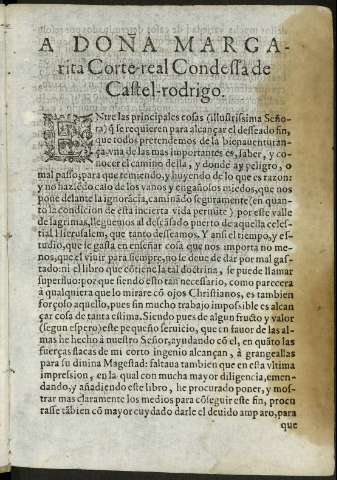 A DOÑA MARGA-
rita Corte-real Condessa de
Castel-rodrigo.
ENtre las principales cosas (illustrissima Seño-
ra) q̃ se requieren para alcançar el desseado fin,
que todos pretendemos de la bienauenturan-
ça, vna de las mas importantes es, saber, y co-
nocer el camino della, y donde ay peligro, o
mal passo; para que temiendo, y huyendo de lo que es razon:
y no haziẽdo caso de los vanos y engañosos miedos, que nos
pone delante la ignorãcia, caminãdo seguramente (en quan-
to la condicion de esta incierta vida permite) por este valle
de lagrimas, lleguemos al desseado puerto de aquella celes-
tial Hierusalem, que tanto desseamos. Y ansi el tiempo, y es-
tudio, que se gasta en enseñar cosa que nos importa no me-
nos, que el viuir para siempre, no se deue de dar por mal gas-
tado: ni el libro que cõtiene la tal doctrina, se puede llamar
superfluo: por que siendo esto tan necessario, como parecera
à qualquiera que lo mirare cõ ojos Christianos, es tambien
forçoso aquello, pues sin mucho trabajo impossible es alcan
çar cosa de tanta estima. Siendo pues de algun fructo y valor
(segun espero) este pequeño seruicio, que en fauor de las al-
mas he hecho à nuestro Señor, ayudando cõ el, en quãto las
fuerças flacas de mi corto ingenio alcançan, à grangeallas
para su diuina Magestad: faltaua tambien que en esta vltima
impression, en la qual con mucha mayor diligencia, emen-
dando, y añadiendo este libro, he procurado poner, y mos-
trar mas claramente los medios para cõseguir este fin, procu
rasse tãbien cõ mayor cuydado darle el deuido amparo, para
que